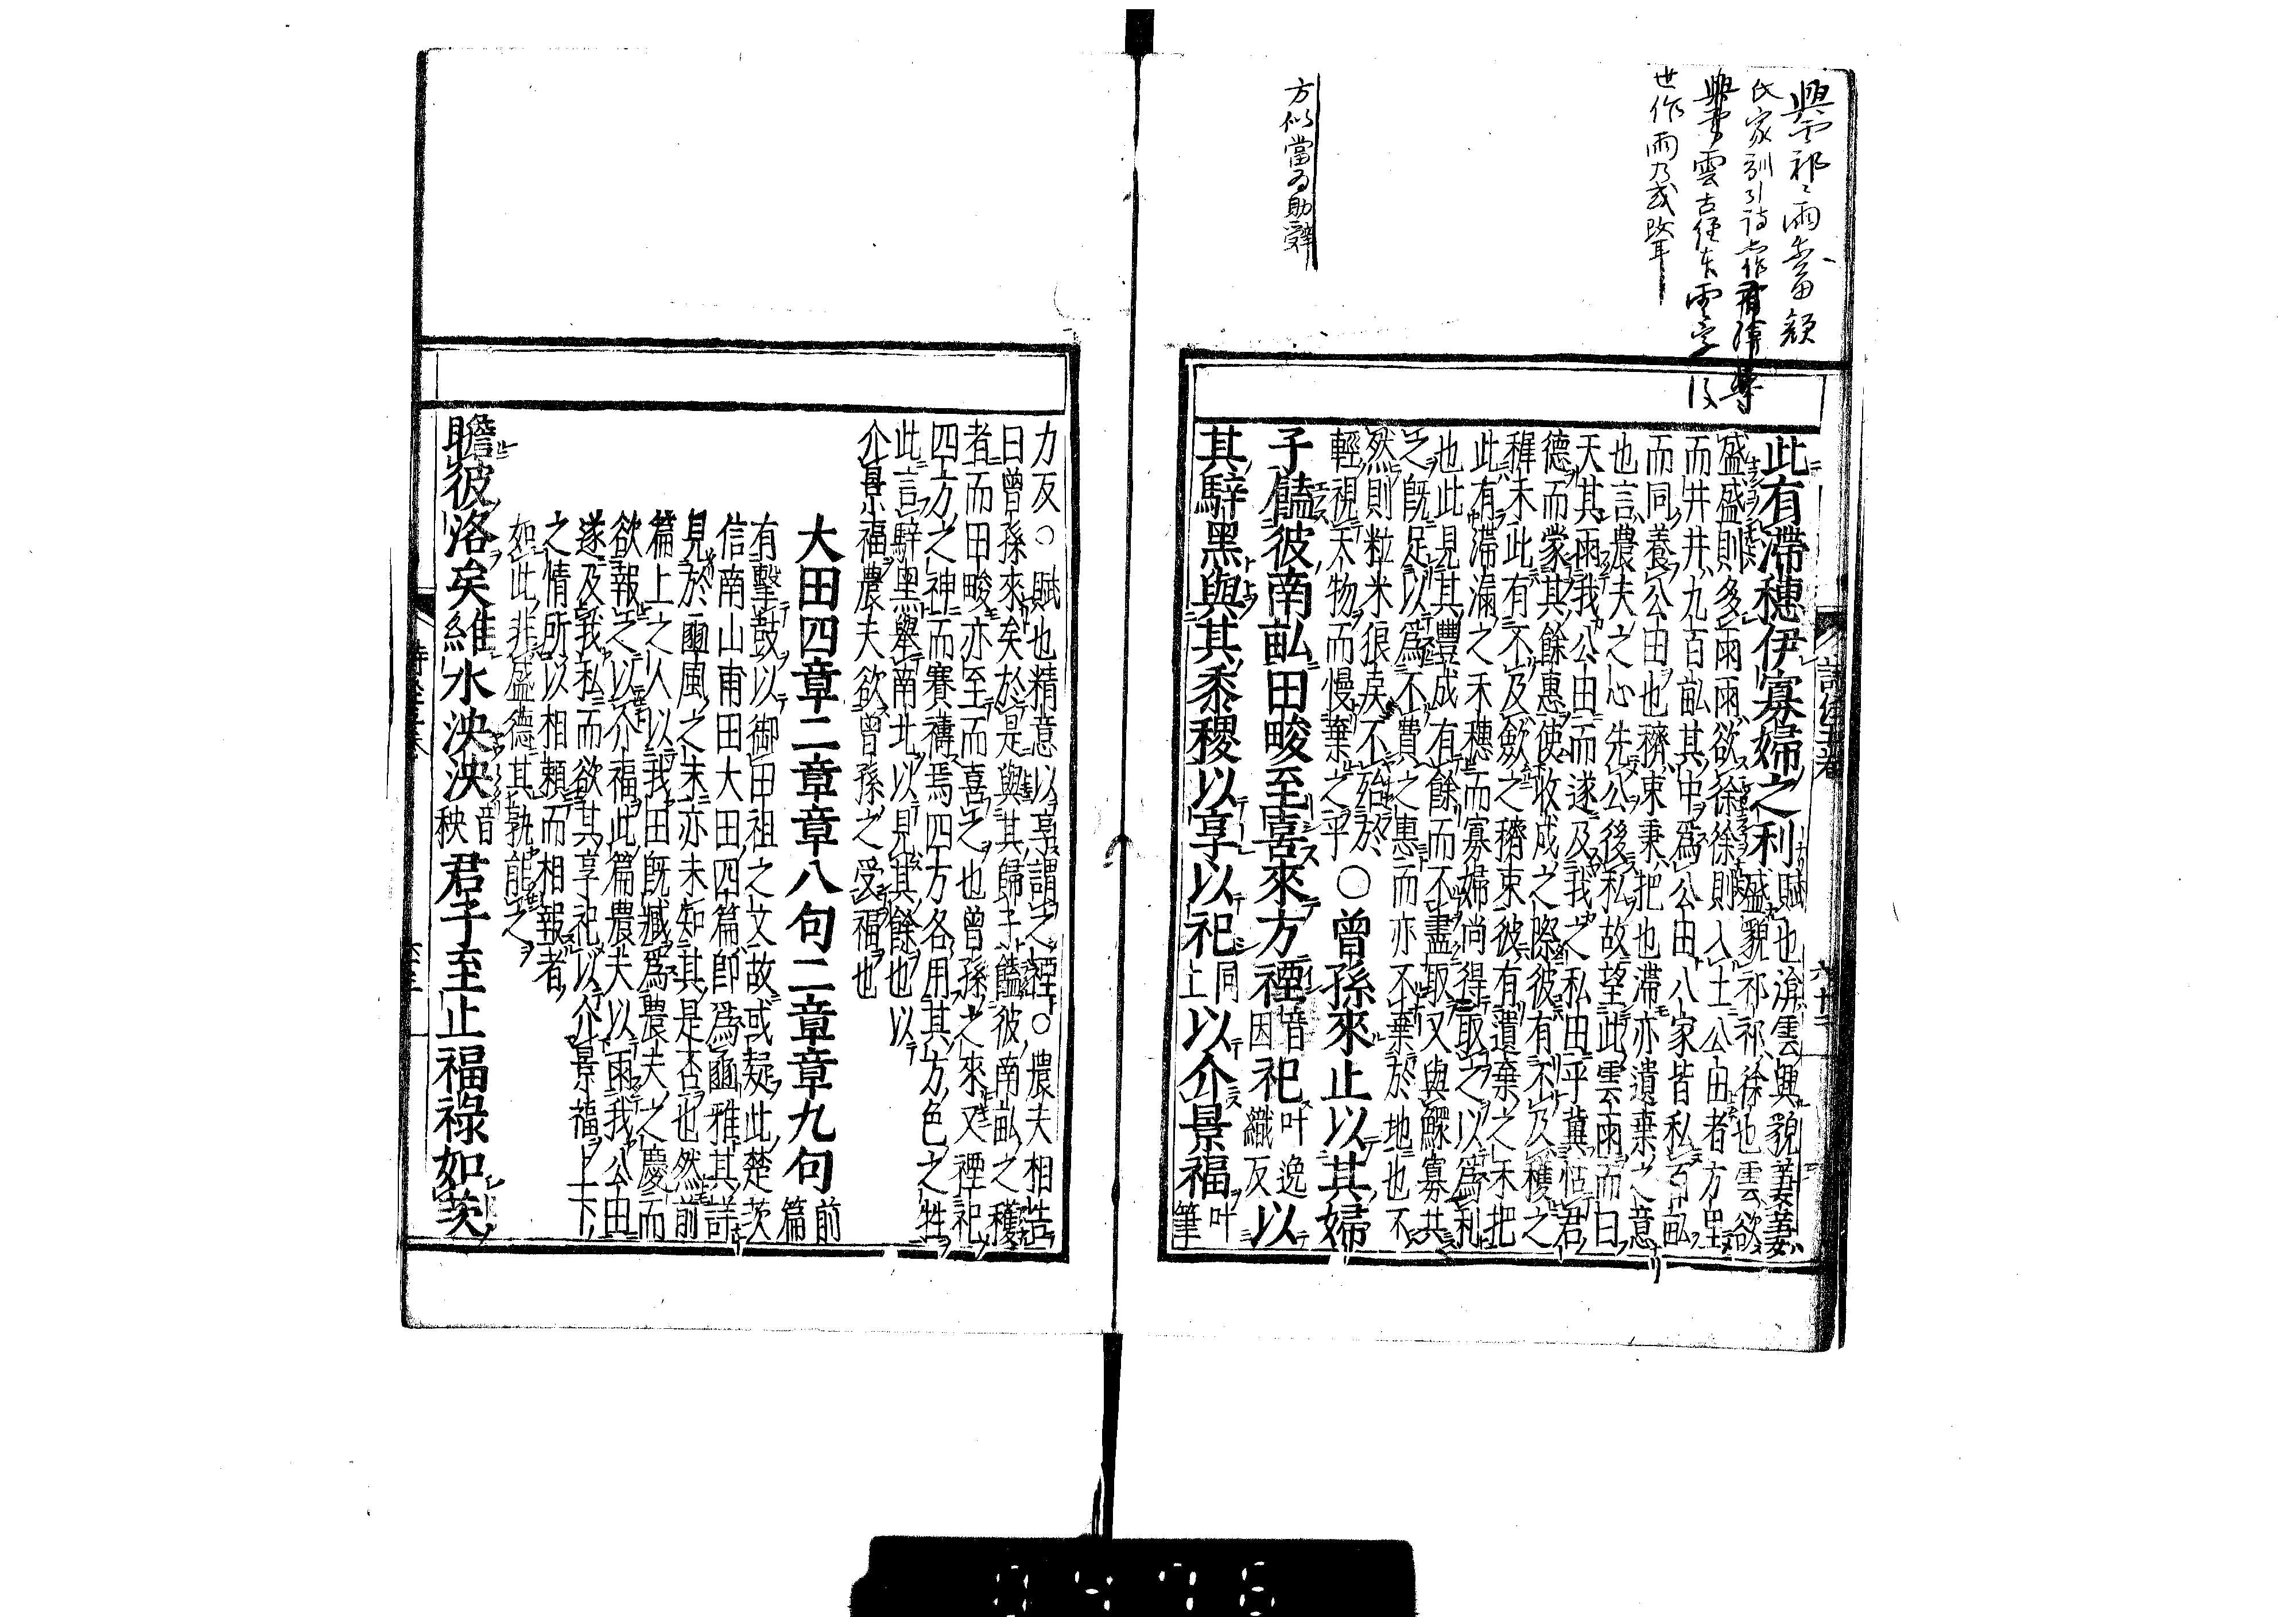 此有滯穗伊寡婦之利賦也渰雲興貌萋萋
盛貌祁祁徐也雲欲
盛盛則多雨雨欲徐徐則入土公田者方里
而井井九百畝其中爲公田八家皆私百畝
而同養公田也穧束秉把也滯亦遺棄之意
也言農夫之心先公後私故望此雲雨而曰
天其雨我公田而遂及我之私田乎冀怙君
德而蒙其餘惠使收成之際彼有不及穫之
穉禾此有不及斂之穧束彼有遺棄之禾把
此有滯漏之禾穗而寡婦尚得取之以爲利
也此見其豐成有餘而不盡取又與鰥寡共
之既足以爲不費之惠而亦不棄於地也不
然則粒米狼戾不殆於
輕視天物而慢棄之乎○曾孫來止以其婦
子饁彼南畝田畯至喜來方禋音因祀叶逸織反以
其騂黑與其黍稷以享以祀同上以介景福叶筆
力反○賦也精意以享謂之禋○農夫相告
曰曾孫來矣於是與其歸子饁彼南畝之穫
者而田畯亦至而喜之也曾孫之來又禋祀
四方之神而賽禱焉四方各用其方色之牲
此言騂黑舉南北以見其餘也以
介景福農夫欲曾孫之受福也
大田四章二章章八句二章章九句前篇
有擊鼓以御田祖之文故或疑此楚茨
信南山甫田大田四篇卽爲豳雅其詳
見於豳風之末亦未知其是否也然前
篇上之人以我田既臧爲農夫之慶而
欲報之以介福此篇農夫以雨我公田
遂及我私而欲其享祀以介景福上下
之情所以相賴而相報者
如此非盛德其孰能之
瞻彼洛矣維水泱泱音秧君子至止福祿如茨
方似當为助辭
世作雨乃或改耳